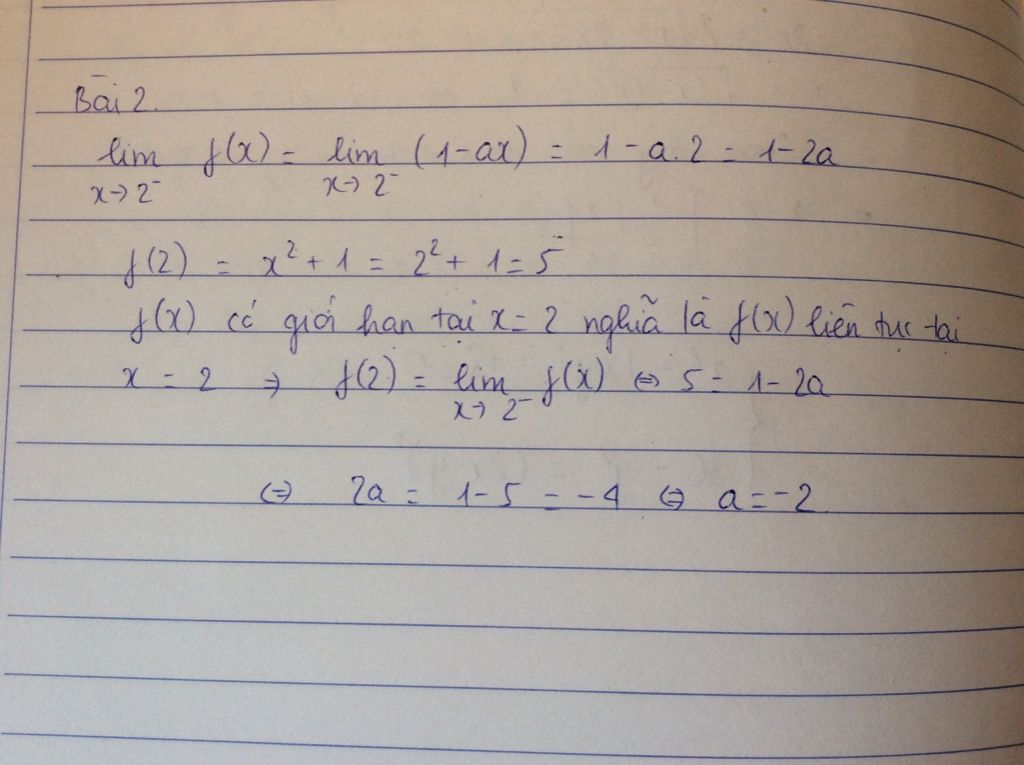 Bài 2.
lim f(x) = lim (1-ax) = 1-a.2 = 1-2a
x→2⁻ x→2⁻
f(2) = x² + 1 = 2² + 1 = 5
f(x) có giới hạn tại x = 2 nghĩa là f(x) liên tục tại
x = 2 ⇒ f(2) = lim f(x) ⇔ 5 = 1-2a
x→2⁻
⇔ 2a = 1-5 = -4 ⇔ a = -2